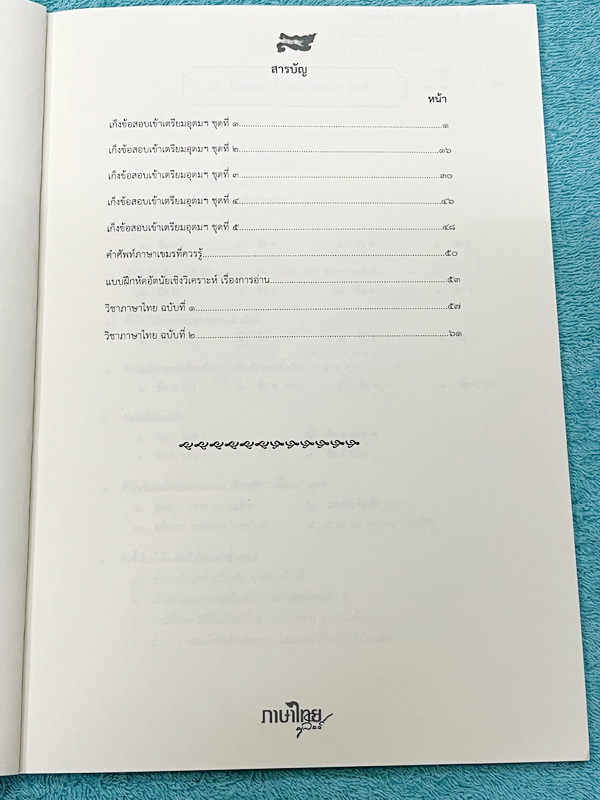 สารบัญ
หน้า
เก็งข้อสอบเข้าเตรียมอุดมฯ ชุดที่ ๑...........................................................................๑
เก็งข้อสอบเข้าเตรียมอุดมฯ ชุดที่ ๒.........................................................................๑๖
เก็งข้อสอบเข้าเตรียมอุดมฯ ชุดที่ ๓.........................................................................๓๐
เก็งข้อสอบเข้าเตรียมอุดมฯ ชุดที่ ๔.........................................................................๔๖
เก็งข้อสอบเข้าเตรียมอุดมฯ ชุดที่ ๕.........................................................................๔๘
คำศัพท์ภาษาเขมรที่ควรรู้...................................................................................๕๐
แบบฝึกหัดอัตนัยเชิงวิเคราะห์ เรื่องการอ่าน................................................................๕๓
วิชาภาษาไทย ฉบับที่ ๑......................................................................................๕๗
วิชาภาษาไทย ฉบับที่ ๒......................................................................................๖๑
ภาษาไทย